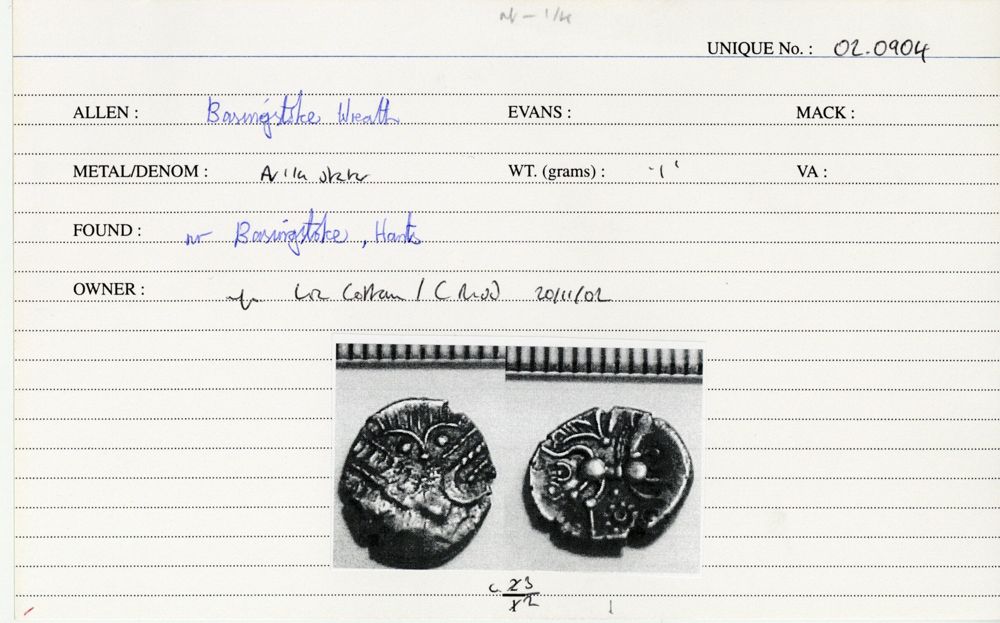 UNIQUE No. : 02.0904
ALLEN : Basingstoke Wreath EVANS : MACK :
METAL/DENOM : WT. (grams) : VA :
FOUND : nr Basingstoke, Hants
OWNER : Liz Cottam / C Rudd 20/11/02
c. x3
x2